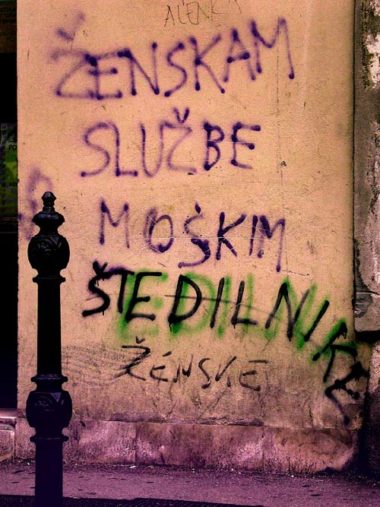 ALENK
ŽENSKAM
SLUŽBE
MOŠKIM
ŠTEDILNIKE
ŽENSKE